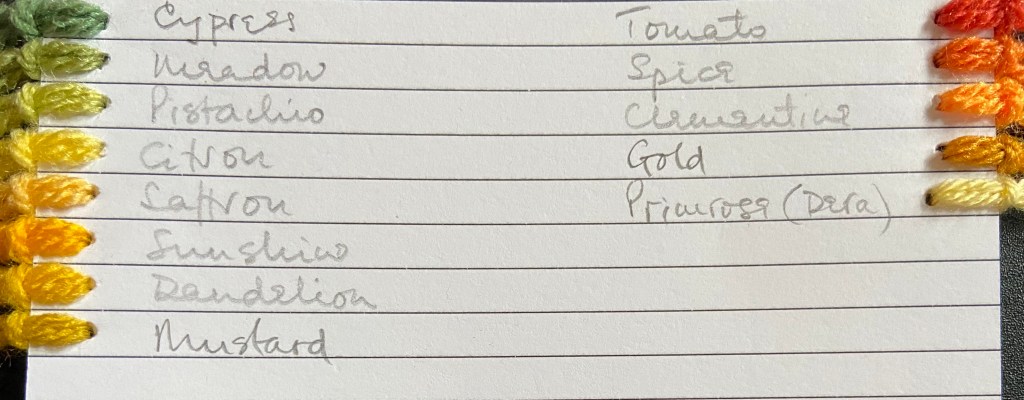 Cypress
Meadow
Pistachio
Citron
Saffron
Sunshine
Dandelion
Mustard
Tomato
Spice
Clementine
Gold
Primrose (Dera)